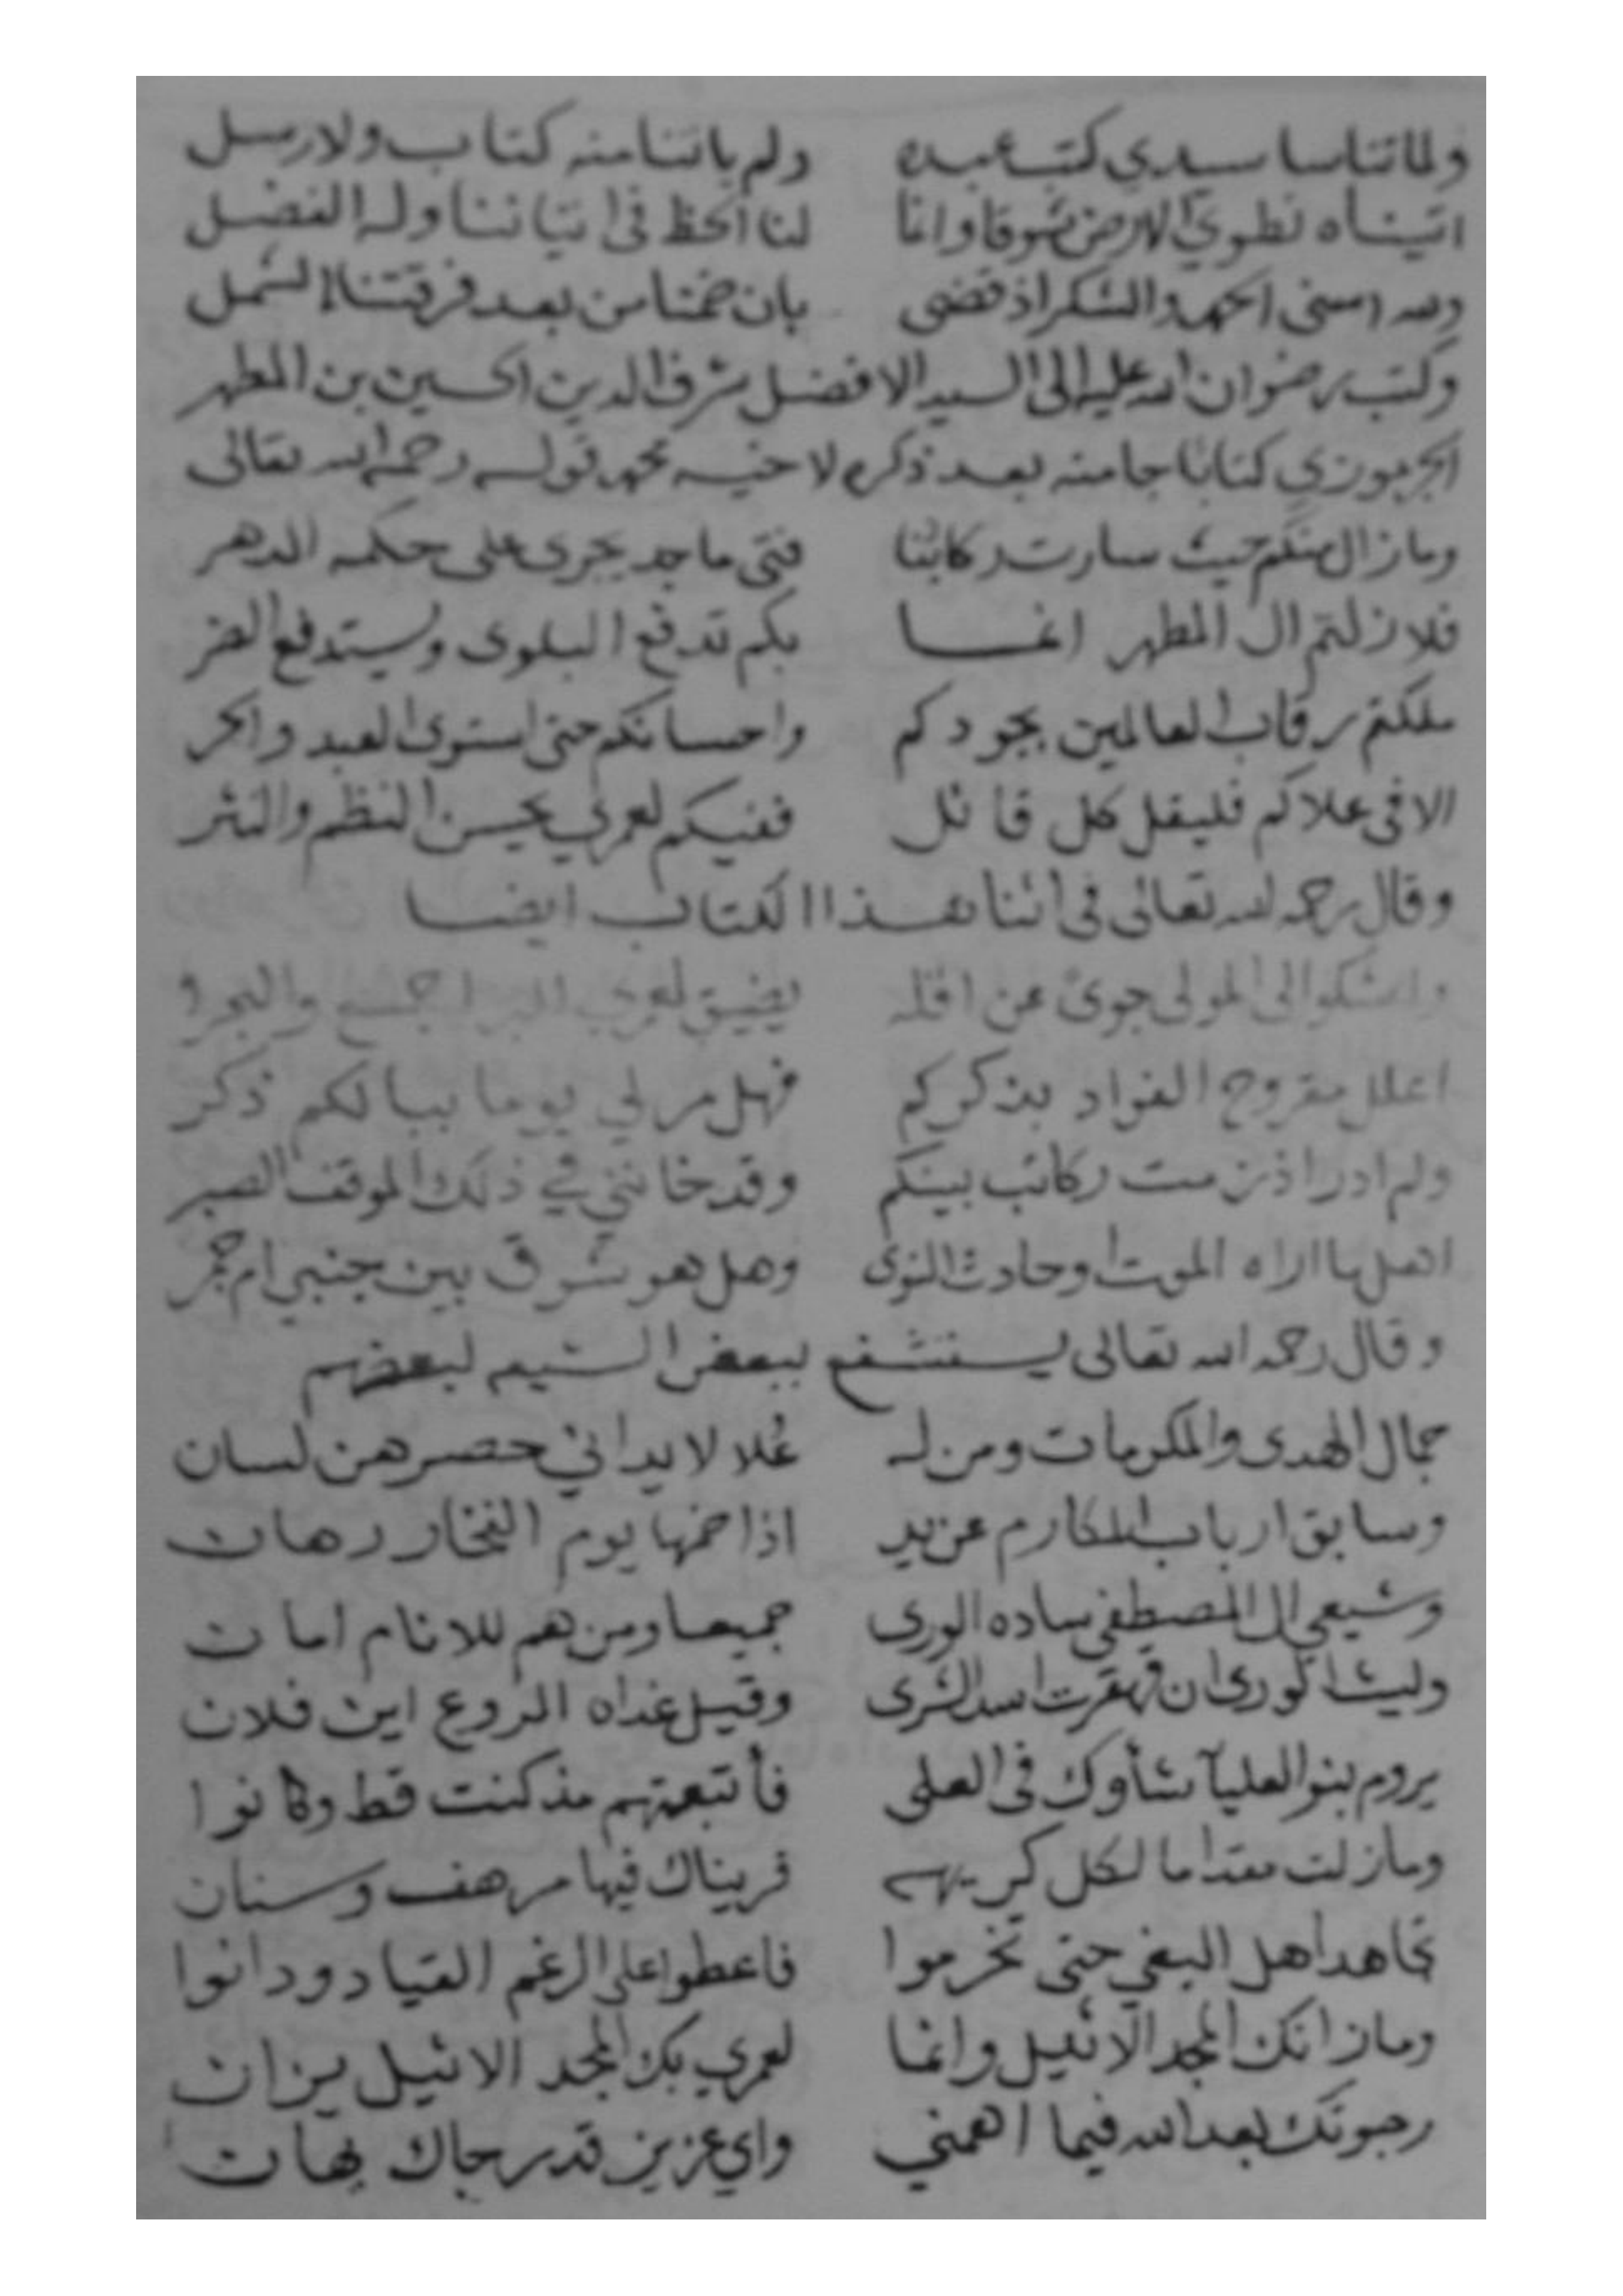 ولما تناسا سيدي كتب عبده ولم ياتنا منه كتاب ولا رسل
اتيناه نطوي الارض شوقا وانما لنا الحظ في اتياننا وله الفضل
ولله اسنى الحمد والشكر اذ قضى بان ضمنا من بعد فرقتنا الشمل
وكتب رضوان الله عليه الى السيد الافضل شرف الدين الحسين بن المطهر
الجرموزي كتابا جا منه بعد ذكره لاخيه محمد قوله رحمه الله تعالى
وما زال منكم حيث سارت ركابنا فتى ماجد يجرى على حكمه الدهر
فلا زلتم ال المطهر انما بكم تدفع البلوى ويستدفع الضر
ملكتم رقاب العالمين بجودكم واحسانكم حتى استوى العبد والحر
الا في علاكم فليقل كل قائل ففيكم لعمري يحسن النظم والنثر
وقال رحمه الله تعالى في اثنا هذا الكتاب ايضا
واشكوا الى المولى جوى عن اقله يضيق لعمري البر اجمع والبحر
اعلل مقروح الفواد بذكركم فهل مر لي يوما ببالكم ذكر
ولم ادر اذ زمت ركائب بينكم وقد خانني في ذلك الموقف الصبر
اهل ما اراه الموت او حادث النوى وهل هو شوق بين جنبي ام جمر
وقال رحمه الله تعالى يستشفع ببعض الشيم لبعضهم
جمال الهدى والمكرمات ومن له عُلا لا يداني حصرهن لسان
وسابق ارباب المكارم عن يد اذا ضمها يوم الفخار رهان
وشيعي ال المصطفى ساده الورى جميعا ومن هم للانام امان
وليث الورى ان قهقرت اسد الشرى وقيل غداه الروع اين فلان
يروم بنو العليآ شأوك في العلى فأتبعتهم مذ كنت قط وكانوا
وما زلت مقداما لكل كريهه قريناك فيها مرهف وسنان
تجاهد اهل البغي حتى تخرموا فاعطوا على الرغم القياد ودانوا
وما زانك المجد الاثيل وانما لعمري بك المجد الاثيل يزان
رجوتك بعد الله فيما اهمني واي عزيز قد رجاك يهان